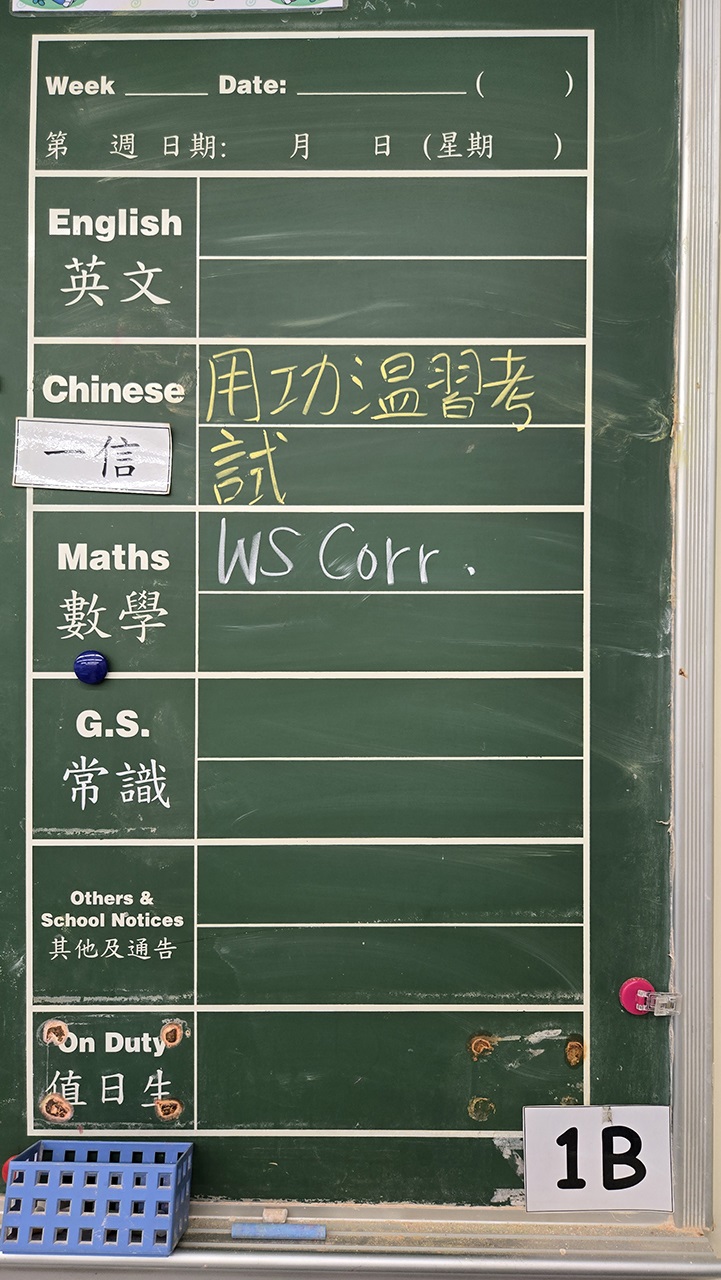 Week ______ Date: ____________ (      )
第 週 日期: 月 日 (星期 )
English
英文
Chinese
用功温習考
一信
試
Maths
WS Corr.
數學
G.S.
常識
Others &
School Notices
其他及通告
On Duty
值日生
1B